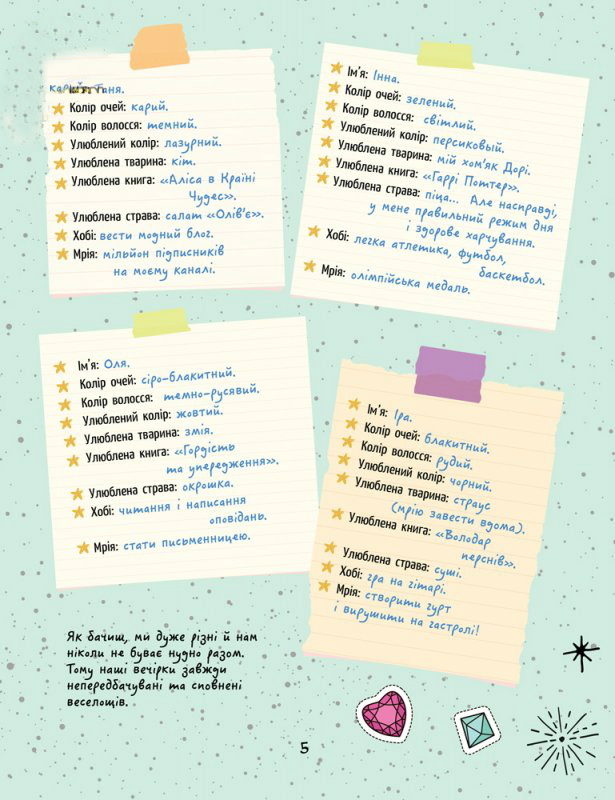 Таня.
Колір очей: карий.
Колір волосся: темний.
Улюблений колір: лазурний.
Улюблена тварина: кіт.
Улюблена книга: «Аліса в Країні
Чудес».
Улюблена страва: салат «Олів'є».
Хобі: вести модний блог.
Мрія: мільйон підписників
на моєму каналі.
Ім'я: Інна.
Колір очей: зелений.
Колір волосся: світлий.
Улюблений колір: персиковый.
Улюблена тварина: мій хом'як Дорі.
Улюблена книга: «Гаррі Поттер».
Улюблена страва: піца... Але насправді,
у мене правильний режим дня
і здорове харчування.
Хобі: легка атлетика, футбол,
баскетбол.
Мрія: олімпійська медаль.
Ім'я: Оля.
Колір очей: сіро-блакитний.
Колір волосся: темно-русявий.
Улюблений колір: жовтий.
Улюблена тварина: змія.
Улюблена книга: «Гордість
та упередження».
Улюблена страва: окрошка.
Хобі: читання і написання
оповідань.
Мрія: стати письменницею.
Ім'я: Іра.
Колір очей: блакитний.
Колір волосся: рудий.
Улюблений колір: чорний.
Улюблена тварина: страус
(мрію завести вдома).
Улюблена книга: «Володар
перснів».
Улюблена страва: суші.
Хобі: гра на гітарі.
Мрія: створити гурт
і вирушити на гастролі!
Як бачиш, ми дуже різні й нам
ніколи не буває нудно разом.
Тому наші вечірки завжди
непередбачувані та сповнені
веселощів.
5